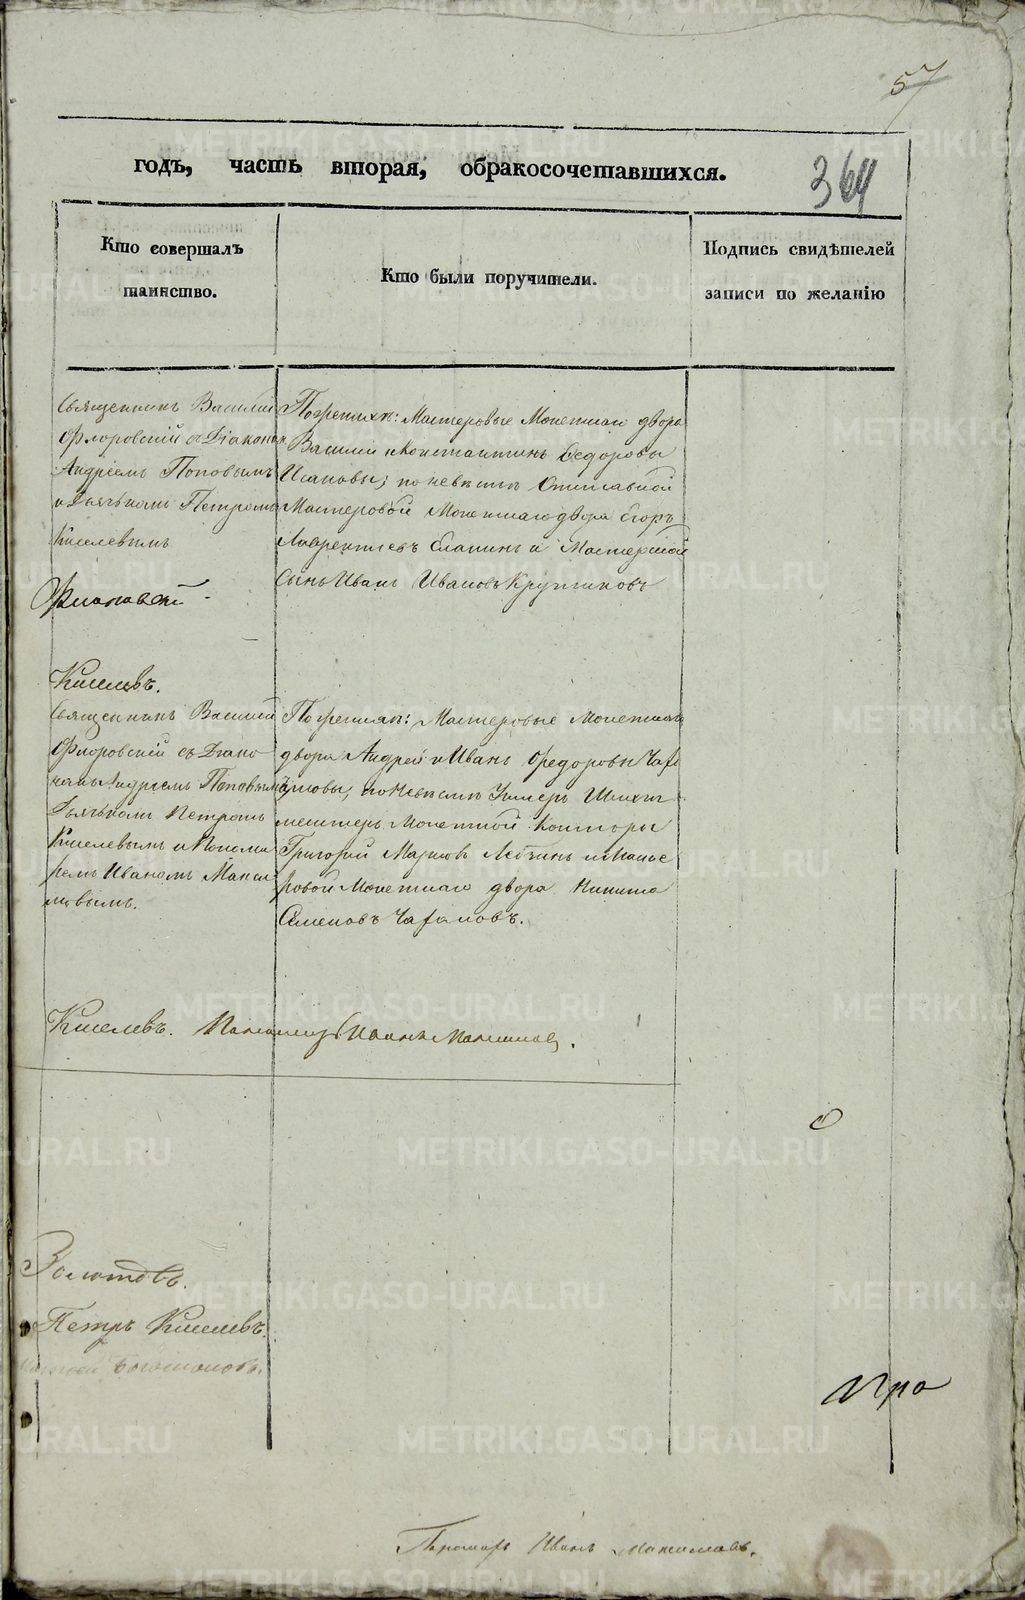 57
годъ, часть вторая, обракосочетавшихся.
364
Кто совершалъ таинство.
Кто были поручители.
Подпись свидѣтелей записи по желанію
Священникъ Василій
Флоровскій съ Діакономъ
Андреемъ Поповымъ
и Дьячкомъ Петромъ
Киселевымъ
Киселевъ.
По женихѣ: Мастеровые Монетнаго двора
Василій и Константинъ Федоровы
по невѣстѣ Отставной
Мастеровой Монетнаго двора Егоръ
Лаврентьевъ и Мастерской
сынъ Иванъ Ивановъ Крупниковъ
Священникъ Василій
Флоровскій съ Діако
номъ Андреемъ Поповымъ
Дьячкомъ Петромъ
Киселевымъ и Понома
ремъ Иваномъ Макси
мовымъ.
По женихѣ: Мастеровые Монетнаго
двора Андрей и Иванъ Федоровы
по невѣстѣ Унтеръ Шихт
мейстеръ Монетной Конторы
Григорій Марковъ и Масте
ровой Монетнаго двора Никита
Семеновъ
Киселевъ. Пономарь Иванъ Максимовъ.
Золотовъ.
Петръ Киселевъ.
Пономарь Иванъ Максимовъ.
METRIKI.GASO-URAL.RU